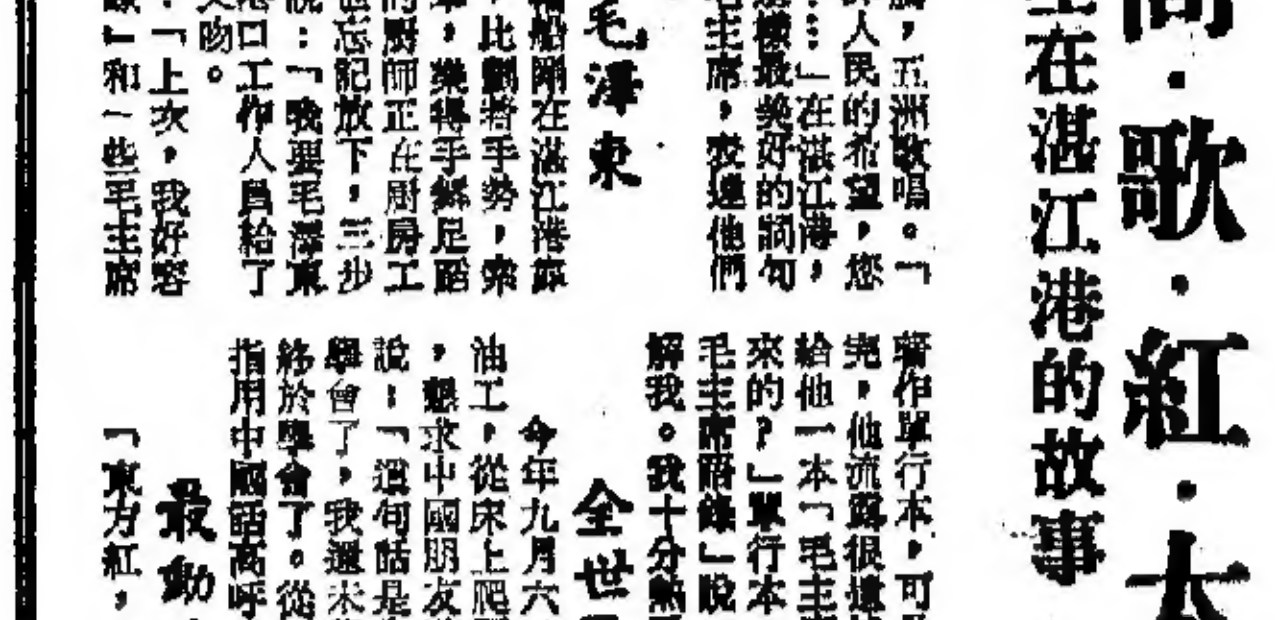 ·歌·紅·太
在湛江港的故事
，五洲歌唱。「
人民的希望，您
…」在湛江港，
樣最美好的詞句
主席，表達他們
毛澤東
船剛在湛江港靠
，比劃着手勢，索
，樂得手舞足蹈
的厨師正在厨房工
忘記放下，三步
說：「我要毛澤東
港口工作人員給了
吻。
：「上次，我好容
」和一些毛主席
著作單行本，可
完，他流露很遺
給他一本「毛主
來的？」單行本
毛主席語錄」說
解我。我十分熱
全世
今年九月六
油工，從床上爬
，懇求中國朋友
說：「這句話是
學會了，我還未
終於學會了。從
指用中國話高呼
最動
「東方紅，